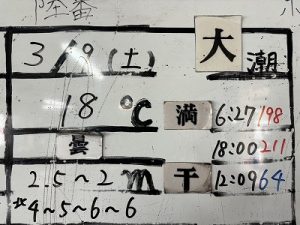 陸番
3/9(土) 大潮
18℃ 満 6:27 198
曇 18:00 211
2.5~2m 干 12:09 64
北4~5~6~6